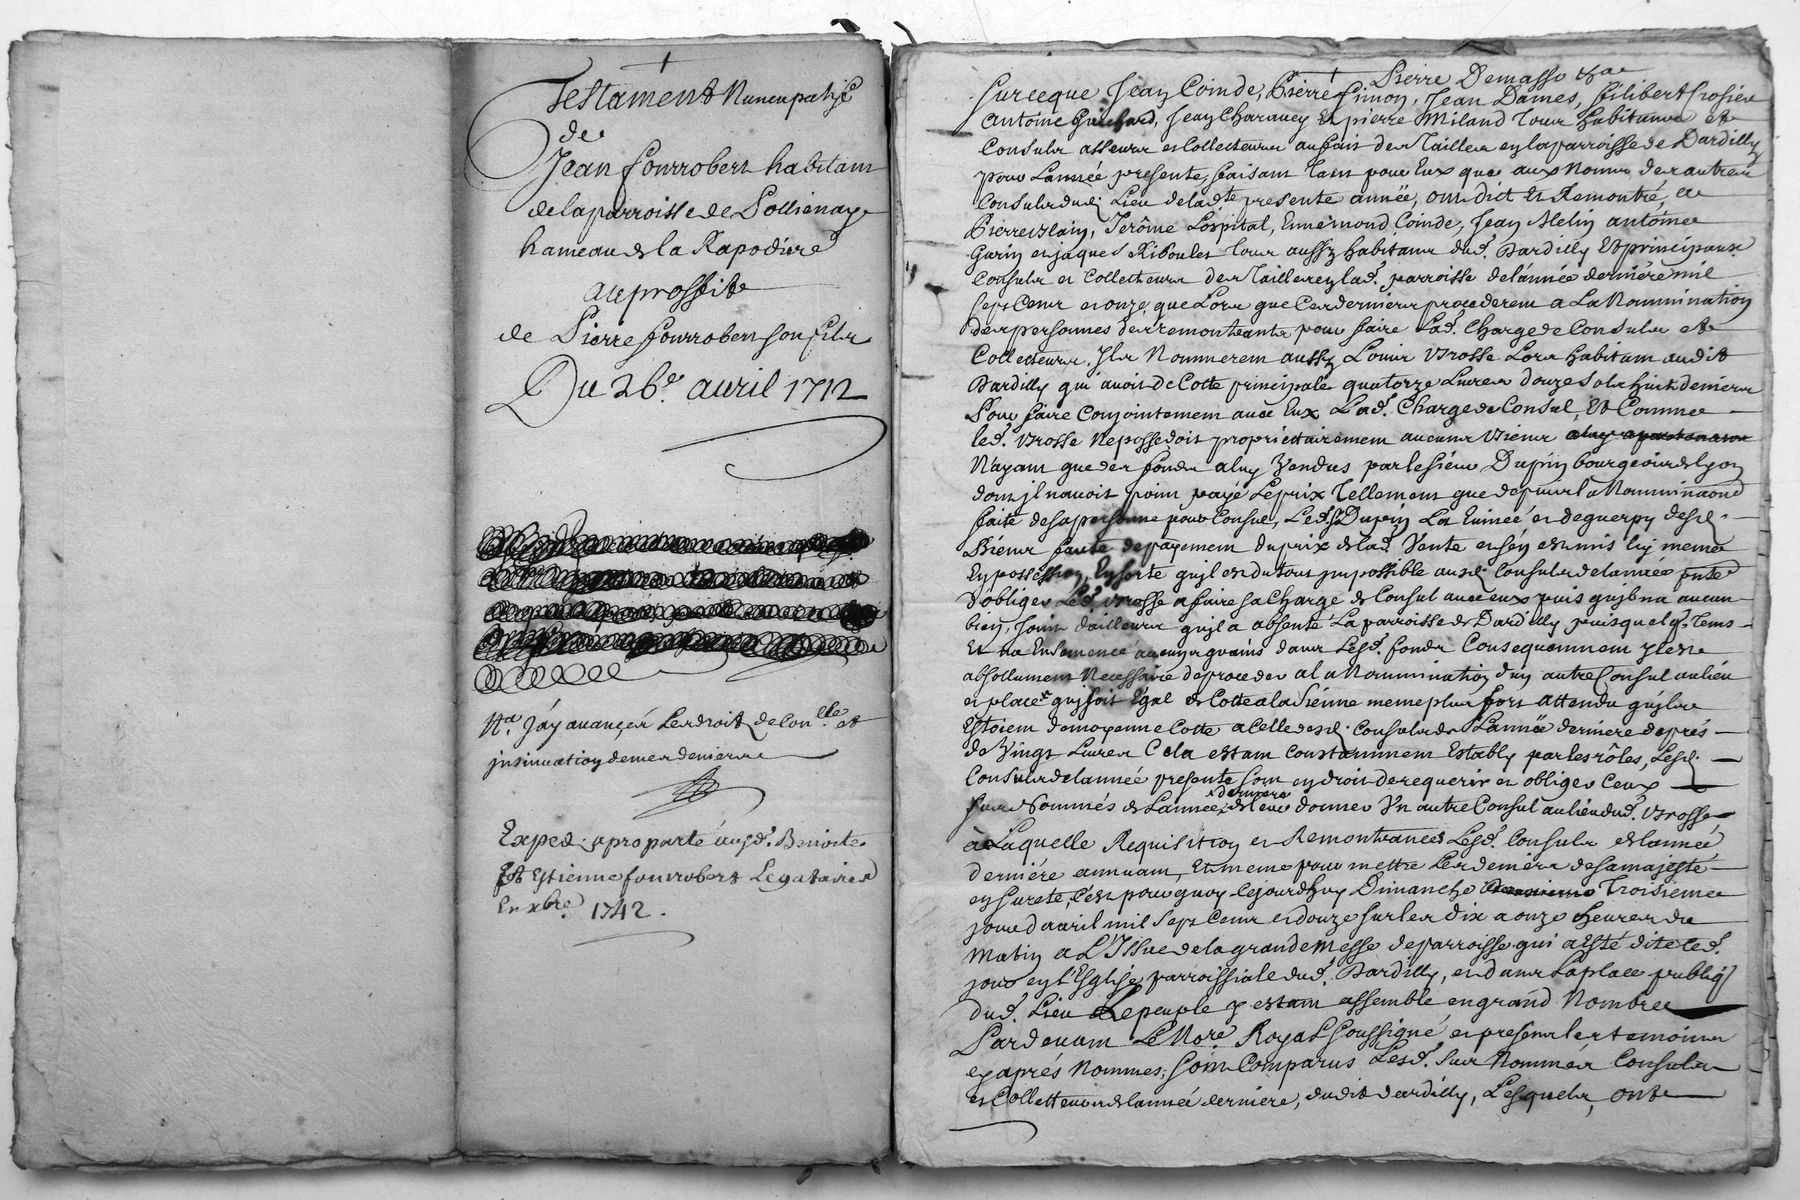 Testament Nuncupatif
de
Jean fourrobert habitant
de la parroisse de Pollienay
hameau de la Rapodiere
au proffit
de Pierre fourrobert son fils
Du 26e. avril 1712
Na. J'ay avancer les droits de Conlle et
jnsinuation de mes deniers
Exped. apro parte aux d. Benoite
Et Estienne fourrobert Legataires
En xbre. 1742.
Pierre Demasso &a
Surceque Jean Coinde, Pierre Simon, Jean Dames, filibert Crosier
Antoine Guichard, Jean Charavey Et pierre Miland tous habitans et
Consuls asseeurs et Collecteurs au fait des Tailles en la parroisse de Dardilly
pour L'année presente, faisant tant pour Eux que aux Noms des autres
Consuls dud. Lieu de lad.te presente année, ont dict Et Remontré, a
Pierre Blain, Jerôme Lospital, Ennemond Coinde, Jean Melin antoine
Garin et jaques Riboulet tous aussy habitans dud. Dardilly Et principaux
Consuls et Collecteurs des Tailles en lad. parroisse de l'année derniére mil
sept Cent et onze, que Lors que Ces derniers procederent a La Nommination
des personnes des remontrants pour faire Lad. Charge de Consuls et
Collecteurs, Ils Nommerent aussy Louis Brosse Lors habitant audit
Dardilly qui avoit De Cotte principale quatorze Livres douze sols huit deniers
Pour faire Conjointement avec Eux Lad. Charge de Consul, Et Comme
led. Brosse Ne possedoit proprietairement aucuns Biens
N'ayant que des fonds a luy Vendus par le sieur Dupin bourgeois de Lyon
dont jl n'avoit point payé Le prix Tellement que depuis la Nomminaon
faite de sa personne pour Consul, Led. Sr Dupin La Evincé et deguerpy desd.
Biens faute de payement du prix de lad. Vente et s'en est mis luy meme
En possession, En sorte qu'il est du tout jmpossible ausd. Consuls de l'année pnte
d'obliger Led. Brosse a faire sa Charge de Consul avec eux puis qu'jl n'a aucun
bien, Joint d'ailleurs qu'jl a absenté La parroisse de Dardilly puis quelq. Tems
Et n'a Ensemencé aucuns grains dans Lesd. fonds Consequemment jl est
absollument Necessaire de proceder a la Nommination d'un autre Consul au lieu
et place qui soit Egal de Cotte a la sienne meme plus fort attendu qu'jls
Estoient de moyenne Cotte a Celle desd. Consuls de L'année derniere de prés
de Vingt Livres Cela estant Constamment Estably par les rôles, Lesd.
Consuls de l'année presente sont en droit de requerir et obliger Ceux
sus Nommés de L'année derniére de leur donner Un autre Consul au lieu dud. Brosse
à Laquelle Requisition et Remontrances Lesd. Consuls de l'année
derniére annuant, Et meme pour mettre Les deniers de sa majesté
en sureté, C'est pour quoy Cejourdhuy Dimanche Troisieme
jour d'avril mil sept Cent et douze sur les dix a onze heures du
Matin a L'Issue de la grande Messe de parroisse qui a esté dite led.
jour en l'Eglise parroissiale dud. Dardilly, et dans La place publiq
dud. Lieu Le peuple y estant assemblé en grand Nombre
Pardevant Le Nore. Royal soussigné et presents les temoins
cy aprés Nommes, sont Comparus Lesd. sus Nommés Consuls
et Collecteurs de l'année derniere, dudit dardilly, Lesquels, ont